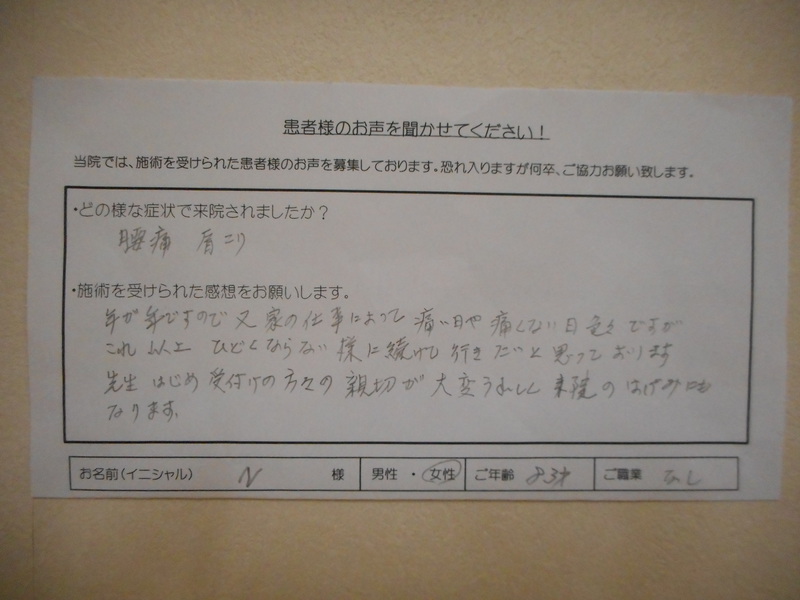 患者様のお声を聞かせてください!
当院では、施術を受けられた患者様のお声を募集しております。恐れ入りますが何卒、ご協力お願い致します。
・どの様な症状で来院されましたか?
腰痛 肩こり
・施術を受けられた感想をお願いします。
年が年ですので又家の仕事によって痛い日や痛くない日色々ですが
これ以上ひどくならない様に続けて行きたいと思っております
先生はじめ受付けの方々の親切が大変うれしく来院のはげみにも
なります。
お名前(イニシャル) N 様 男性・女性 ご年齢 83才 ご職業 なし